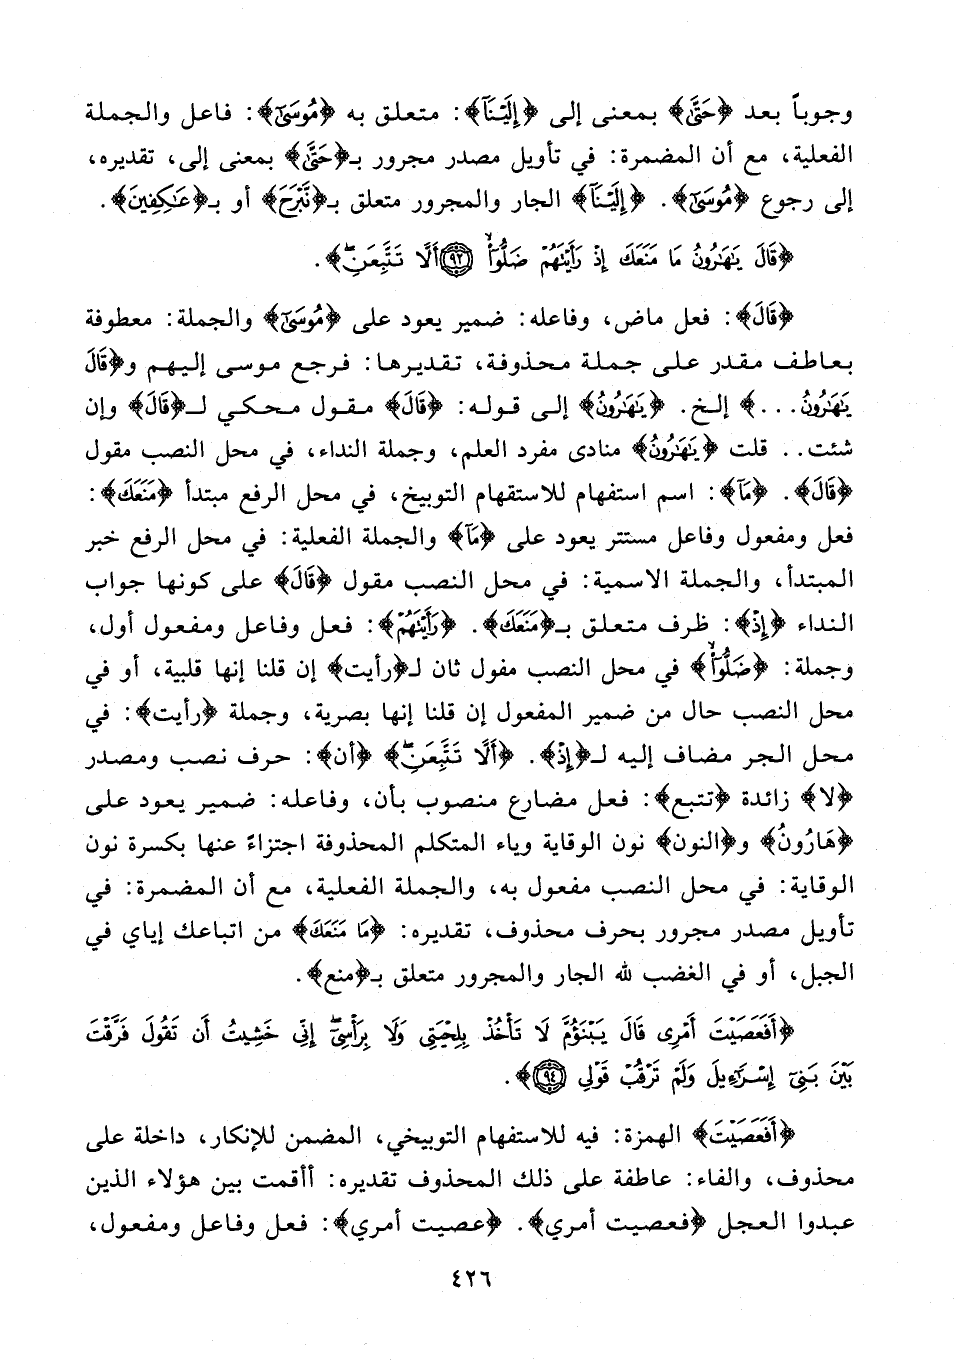 وجوباً بعد ﴿حَتَّىٰ﴾ بمعنى إلى ﴿إِلَيْنَآ﴾: متعلق به ﴿مُوسَىٰ﴾: فاعل والجملة
الفعلية، مع أن المضمرة: في تأويل مصدر مجرور بـ﴿حَتَّىٰ﴾ بمعنى إلى، تقديره،
إلى رجوع ﴿مُوسَىٰ﴾. ﴿إِلَيْنَآ﴾ الجار والمجرور متعلق بـ﴿نَّبْرَحَ﴾ أو بـ﴿عَـٰكِفِينَ﴾.
﴿قَالَ يَـٰهَـٰرُونُ مَا مَنَعَكَ إِذْ رَأَيْتَهُمْ ضَلُّوٓا۟ ۙ ﴿٩٢﴾ أَلَّا تَتَّبِعَنِ ۖ﴾.
﴿قَالَ﴾: فعل ماض، وفاعله: ضمير يعود على ﴿مُوسَىٰ﴾ والجملة: معطوفة
بعاطف مقدر على جملة محذوفة، تقديرها: فرجع موسى إليهم و﴿قَالَ
يَـٰهَـٰرُونُ...﴾ إلخ. ﴿يَـٰهَـٰرُونُ﴾ إلى قوله: ﴿قَالَ﴾ مقول محكي لـ﴿قَالَ﴾ وإن
شئت.. قلت ﴿يَـٰهَـٰرُونُ﴾ منادى مفرد العلم، وجملة النداء، في محل النصب مقول
﴿قَالَ﴾. ﴿مَآ﴾: اسم استفهام للاستقهام التوبيخ، في محل الرفع مبتدأ ﴿مَنَعَكَ﴾:
فعل ومفعول وفاعل مستتر يعود على ﴿مَآ﴾ والجملة الفعلية: في محل الرفع خبر
المبتدأ، والجملة الاسمية: في محل النصب مقول ﴿قَالَ﴾ على كونها جواب
النداء ﴿إِذْ﴾: ظرف متعلق بـ﴿مَنَعَكَ﴾. ﴿رَأَيْتَهُمْ﴾: فعل وفاعل ومفعول أول،
وجملة: ﴿ضَلُّوٓا۟ ۙ﴾ في محل النصب مفول ثان لـ﴿رأيت﴾ إن قلنا إنها قلبية، أو في
محل النصب حال من ضمير المفعول إن قلنا إنها بصرية، وجملة ﴿رأيت﴾: في
محل الجر مضاف إليه لـ﴿إِذْ﴾. ﴿أَلَّا تَتَّبِعَنِ ۖ﴾ ﴿أن﴾: حرف نصب ومصدر
﴿لا﴾ زائدة ﴿تتبع﴾: فعل مضارع منصوب بأن، وفاعله: ضمير يعود على
﴿هَارُونُ﴾ و﴿النون﴾ نون الوقاية وياء المتكلم المحذوفة اجتزاءً عنها بكسرة نون
الوقاية: في محل النصب مفعول به، والجملة الفعلية، مع أن المضمرة: في
تأويل مصدر مجرور بحرف محذوف، تقديره: ﴿مَا مَنَعَكَ﴾ من اتباعك إياي في
الجبل، أو في الغضب لله الجار والمجرور متعلق بـ﴿منع﴾.
﴿أَفَعَصَيْتَ أَمْرِى قَالَ يَبْنَؤُمَّ لَا تَأْخُذْ بِلِحْيَتِى وَلَا بِرَأْسِىٓ ۖ إِنِّى خَشِيتُ أَن تَقُولَ فَرَّقْتَ
بَيْنَ بَنِىٓ إِسْرَٰٓءِيلَ وَلَمْ تَرْقُبْ قَوْلِى ﴿٩٤﴾﴾.
﴿أَفَعَصَيْتَ﴾ الهمزة: فيه للاستفهام التوبيخي، المضمن للإنكار، داخلة على
محذوف، والفاء: عاطفة على ذلك المحذوف تقديره: أأقمت بين هؤلاء الذين
عبدوا العجل ﴿فعصيت أمري﴾. ﴿عصيت أمري﴾: فعل وفاعل ومفعول،
٤٢٦